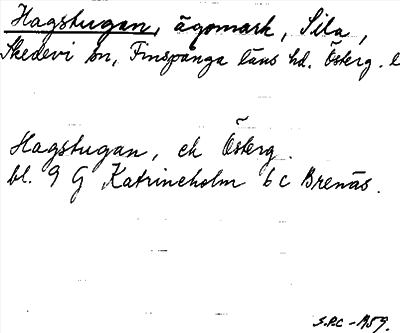 Hagstugan, ägomark, Sila,
Skedevi sn, Finspånga läns hd. Österg. l
Hagstugan, ek Österg.
bl. 9 G Katrineholm 6 c Brenäs.
S.P.C -1959.